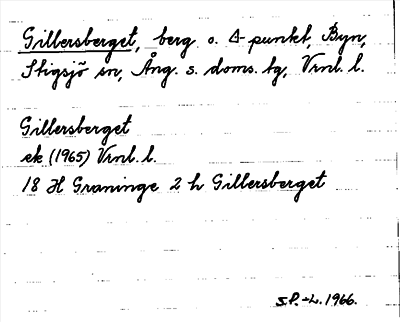 Gillersberget, berg o. Δ-punkt, Byn,
Stigsjö sn, Ång. s. doms. tg, Vrnl. l.
Gillersberget
ek (1965) Vrnl. l.
18 H Graninge 2 h Gillersberget
S.P.-L. 1966.